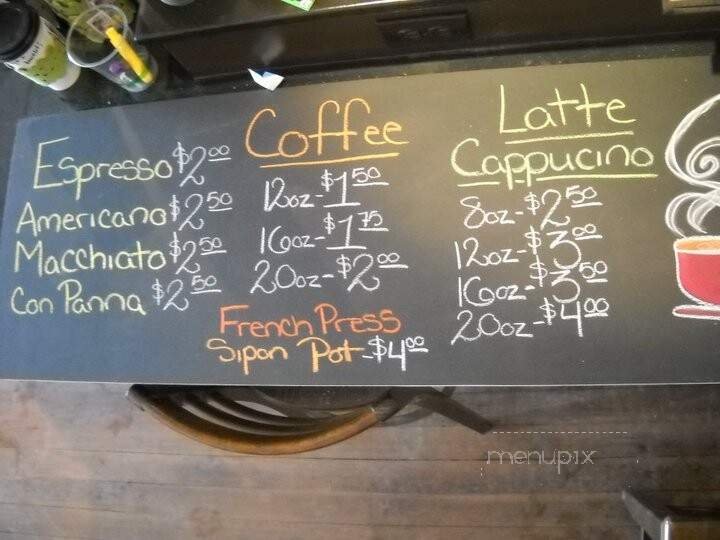 Espresso $2.00
Americano $2.50
Macchiato $2.50
Con Panna $2.50
Coffee
12oz-$1.50
16oz-$1.75
20oz-$2.00
French Press
Sipon Pot-$4.00
Latte
Cappucino
8oz-$2.50
12oz-$3.00
16oz-$3.50
20oz-$4.00
menupix